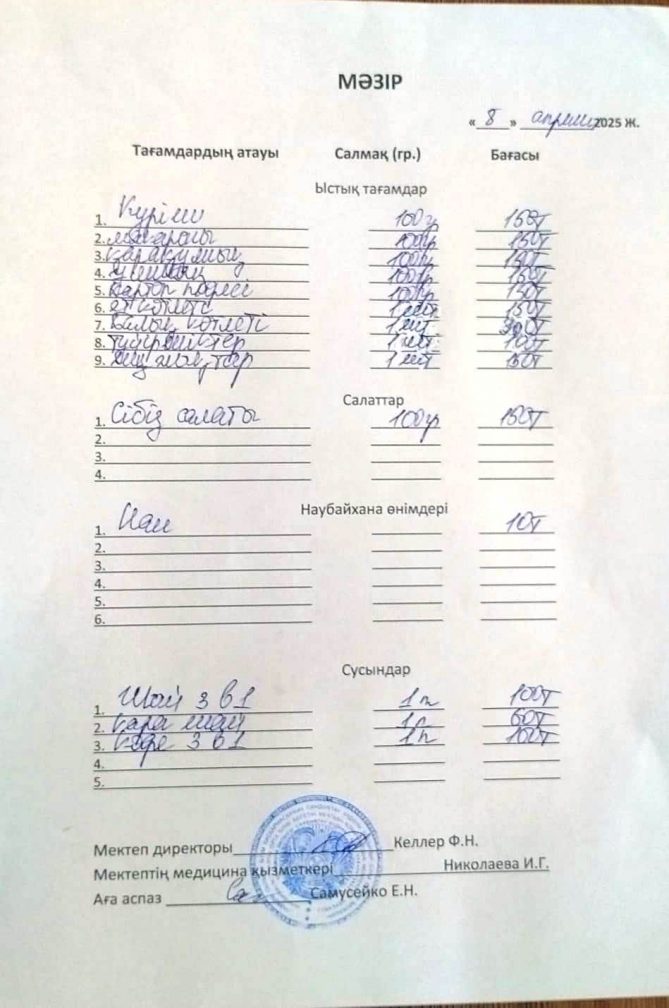 МӘЗІР
« 8 » апрель 2025 ж.
Тағамдардың атауы Салмақ (гр.) Бағасы
Ыстық тағамдар
1. Күріш 100гр 150т
2. макароны 100гр 150т
3. Қарақұмық 100гр 150т
4. 100гр 150т
5. Картоп пюресі 100гр 150т
6. ет котлеті 1шт 150т
7. Балық котлеті 1шт 300т
8. 1шт 100т
9. 1шт 150т
Салаттар
1. Сәбіз салаты 100гр 150т
2.
3.
4.
Наубайхана өнімдері
1. Нан 10т
2.
3.
4.
5.
6.
Сусындар
1. Шай 3 в 1 1п 100т
2. Қара шай 1п 60т
3. Кофе 3 в 1 1п 100т
4.
5.
Мектеп директоры Келлер Ф.Н.
Мектептің медицина қызметкері Николаева И.Г.
Аға аспаз Самусейко Е.Н.